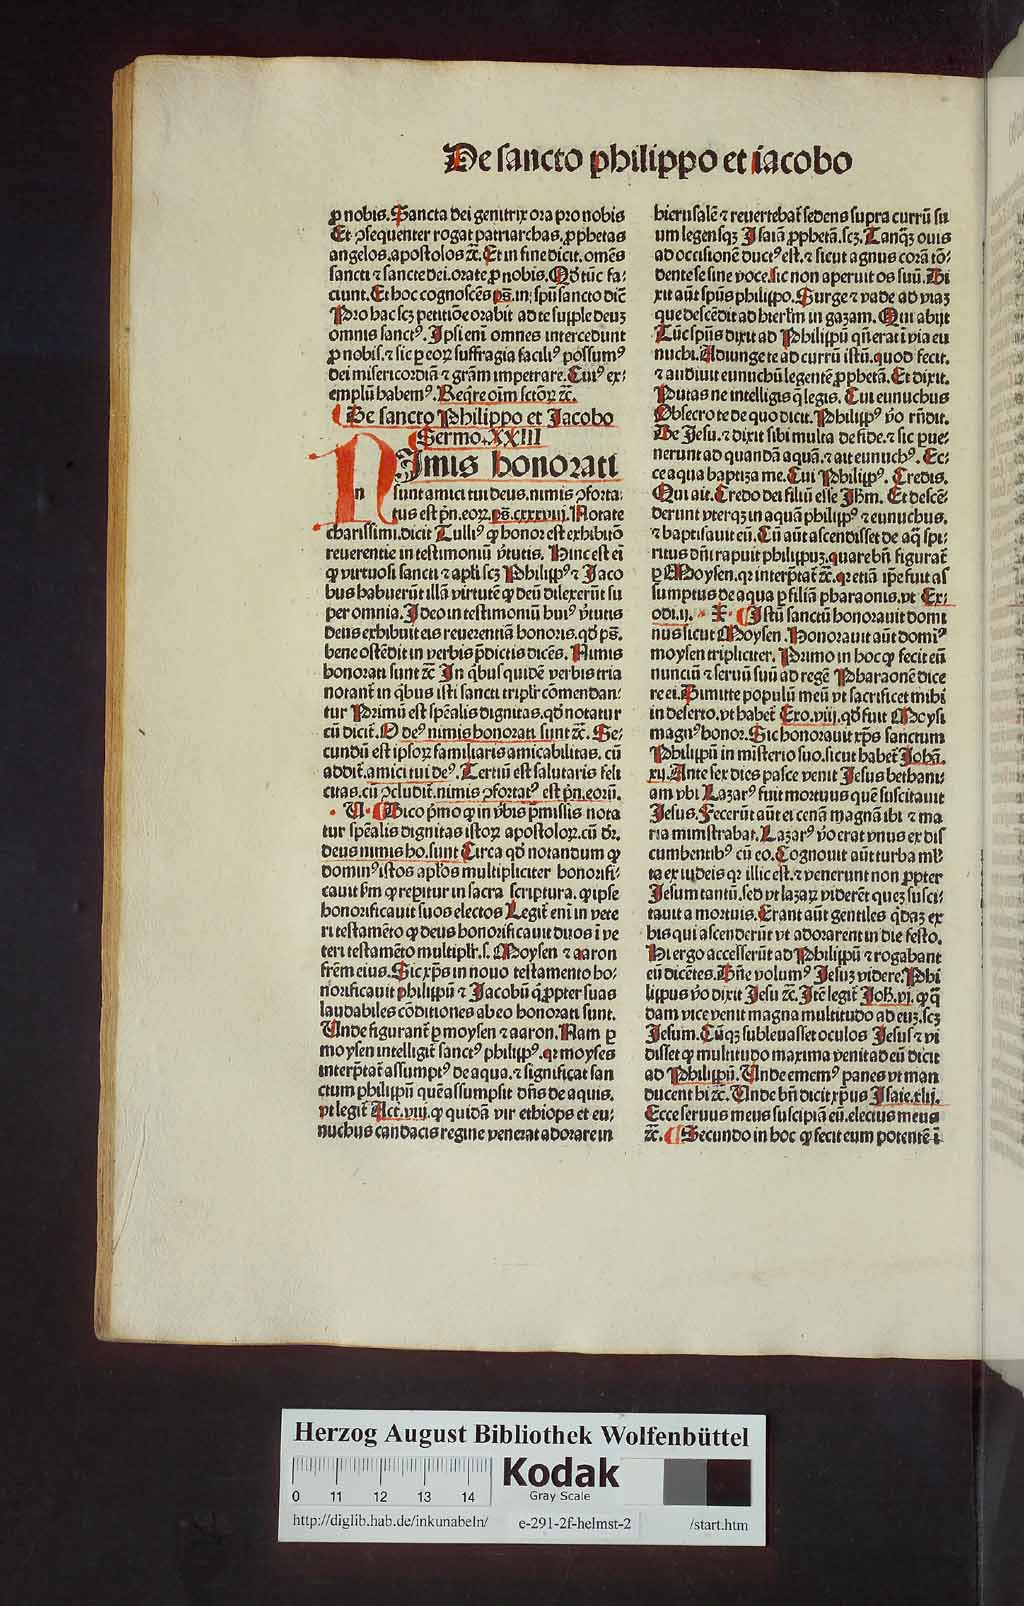 De sancto philippo et iacobo
ꝓ nobis. Sancta dei genitrix ora pro nobis
Et ꝯsequenter rogat patriarchas, ꝓphetas
angelos. apostolos ⁊c̄. Et in fine dicit. om̄es
sancti ⁊ sancte dei. orate ꝓ nobis. Qd̓ tūc fa⸗
ciunt. Et hoc cognoscēs ps̄. in spūsancto dic̄
Pro hac scꝫ petitiōe orabit ad te supple deus
omnis sanctꝰ. Ipsi enī omnes intercedunt
ꝓ nobis. ⁊ sic ꝑ eoꝝ suffragia faciliꝰ possumꝰ
dei misericordiā ⁊ gr̄am impetrare. Cuiꝰ ex⸗
emplū habemꝰ. Req̓re oīm sctōꝝ ⁊c̄.
De sancto Philippo et Jacobo
Sermo. XXIII
NImis honorati
sunt amici tui deus. nimis ꝯforta⸗
tus est p̄n. eoꝝ. ps̄. cxxxviij. Notate
charissimi. dicit Tulliꝰ ꝙ honor est exhibitō
reuerentie in testimoniū v̓tutis. Hinc est eī
ꝙ virtuosi sancti ⁊ apl̓i scꝫ Philippꝰ ⁊ Jaco
bus habuerūt illā virtutē ꝙ deū dilexerūt su
per omnia. Ideo in testimoniū huiꝰ v̓tutis
deus exhibuit eis reuerentiā honoris. qd̓ ps̄.
bene ostēdit in verbis p̄dictis dicēs. Nimis
honorati sunt ⁊c̄ In q̓bus quidē verbis tria
notant̄ in q̓bus isti sancti triplr̓ cōmendan⸗
tur Primū est sp̄ealis dignitas. qd̓ notatur
cū dicit̄. O deꝰ nimis honorati sunt ⁊c̄. Se⸗
cundū est ipsoꝝ familiaris amicabilitas. cū
addit̄. amici tui deꝰ. Tertiū est salutaris feli
citas. cū ꝯcludit̄. nimis ꝯfortatꝰ est p̄n. eorū.
Dico p̓mo ꝙ in v̓bis p̄missis nota
tur sp̄ealis dignitas istoꝝ apostoloꝝ. cū dr̄.
deus nimis ho. sunt Circa qd̓ notandum ꝙ
dominꝰ istos apl̓os multipliciter honorifi⸗
cauit ẜm ꝙ reꝑitur in sacra scriptura. ꝙ ipse
honorificauit suos electos Legit̄ enī in vete
ri testamēto ꝙ deus honorificauit duos ī ve
teri testamēto multiplr̓. s. Moysen ⁊ aaron
fr̄em eius. Sic xp̄s in nouo testamento ho⸗
norificauit philippū ⁊ Jacobū q̓ ꝓpter suas
laudabiles cōditiones ab eo honorati sunt.
Unde figurant̄ ꝑ moysen ⁊ aaron. Nam ꝑ
moysen intelligit̄ sanctꝰ philippꝰ. qꝛ moyses
interp̄tat̄ assumptꝰ de aqua. ⁊ significat san
ctum philippū quē assumpsit dn̄s de aquis.
vt legit̄ Act. viij. ꝙ quidā vir ethiops et eu⸗
nuchus candacis regine venerat adorare in
hierusalē ⁊ reuertebat̄ sedens supra currū su
um legensqꝫ Isaiā ꝓphetā. scꝫ. Tanqꝫ ouis
ad occisionē ductꝰ est. ⁊ sicut agnus corā tō⸗
dente se sine voce. sic non aperuit os suū. Di
xit aūt spūs philippo. Surge ⁊ vade ad viaꝫ
que descēdit ad hierl̓m in gazam. Qui abijt
Tūc spūs dixit ad Philippū qn̄ erat ī via eu
nuchi. Adiunge te ad currū istū. quod fecit.
⁊ audiuit eunuchū legentē ꝓphetā. Et dixit.
Putas ne intelligis q̓ legis. Cui eunuchus
Obsecro te de quo dicit. Philippꝰ v̓o rn̄dit.
De Jesu. ⁊ dixit sibi multa de fide. ⁊ sic pue⸗
nerunt ad quandā aquā. ⁊ ait eunuchꝰ. Ec⸗
ce aqua baptiza me. Cui Philippꝰ. Credis.
Qui ait. Credo dei filiū esse Jh̄m. Et descē⸗
derunt vterqꝫ in aquā philippꝰ ⁊ eunuchus.
⁊ baptisauit eū. Cū aūt ascendisset de aq̓ spi⸗
ritus dn̄i rapuit philippuꝫ. quare bn̄ figurat̄
ꝑ Moysen. qꝛ interp̄tat̄ ⁊c̄. qꝛ etiā ip̄e fuit as
sumptus de aqua ꝑ filiā pharaonis. vt Ex⸗
odi. ij. Istū sanctū honorauit domi
nus sicut Moysen. Honorauit aūt domīꝰ
moysen tripliciter. Primo in hoc ꝙ fecit eū
nunciū ⁊ seruū suū ad regē Pharaonē dice
re ei. Dimitte populū meū vt sacrificet mihi
in deserto. vt habet̄ Exo. viij. qd̓ fuit Moysi
magnꝰ honor. Sic honorauit xp̄s sanctum
Philippū in misterio suo. sicut habet̄ Johā.
xij. Ante sex dies pasce venit Jesus bethani
am vbi Lazarꝰ fuit mortuus quē suscitauit
Jesus. Fecerūt aūt ei cenā magnā ibi ⁊ ma
ria ministrabat. Lazarꝰ v̓o erat vnus ex dis
cumbentibꝰ cū eo. Cognouit aūt turba ml̓
ta ex iudeis qꝛ illic est. ⁊ venerunt non ꝓpter
Jesum tantū. sed vt lazaꝝ viderēt queꝫ susci⸗
tauit a mortuis. Erant aūt gentiles q̓daꝫ ex
his qui ascenderūt vt adorarent in die festo.
Hi ergo accesserūt ad Philippū ⁊ rogabant
eū dicētes. Dn̄e volumꝰ Jesuꝫ videre. Phi
lippus v̓o dixit Jesu ⁊c̄. Itē legit̄ Joh̄. vj. ꝙ q̄
dam vice venit magna multitudo ad euꝫ. scꝫ
Jesum. Cūqꝫ subleuasset oculos Jesus ⁊ vi
disset ꝙ multitudo maxima venit ad eū dicit
ad Philippū. Unde ememꝰ panes vt man
ducent hi ⁊c̄. Unde bn̄ dicit xp̄us Isaie. xlij.
Ecce seruus meus suscipiā eū. electus meus
⁊c̄. Secundo in hoc ꝙ fecit eum potentē ī
Herzog August Bibliothek Wolfenbüttel
0 11 12 13 14
Kodak
Gray Scale
http://diglib.hab.de/inkunabeln/ e-291-2f-helmst-2 /start.htm